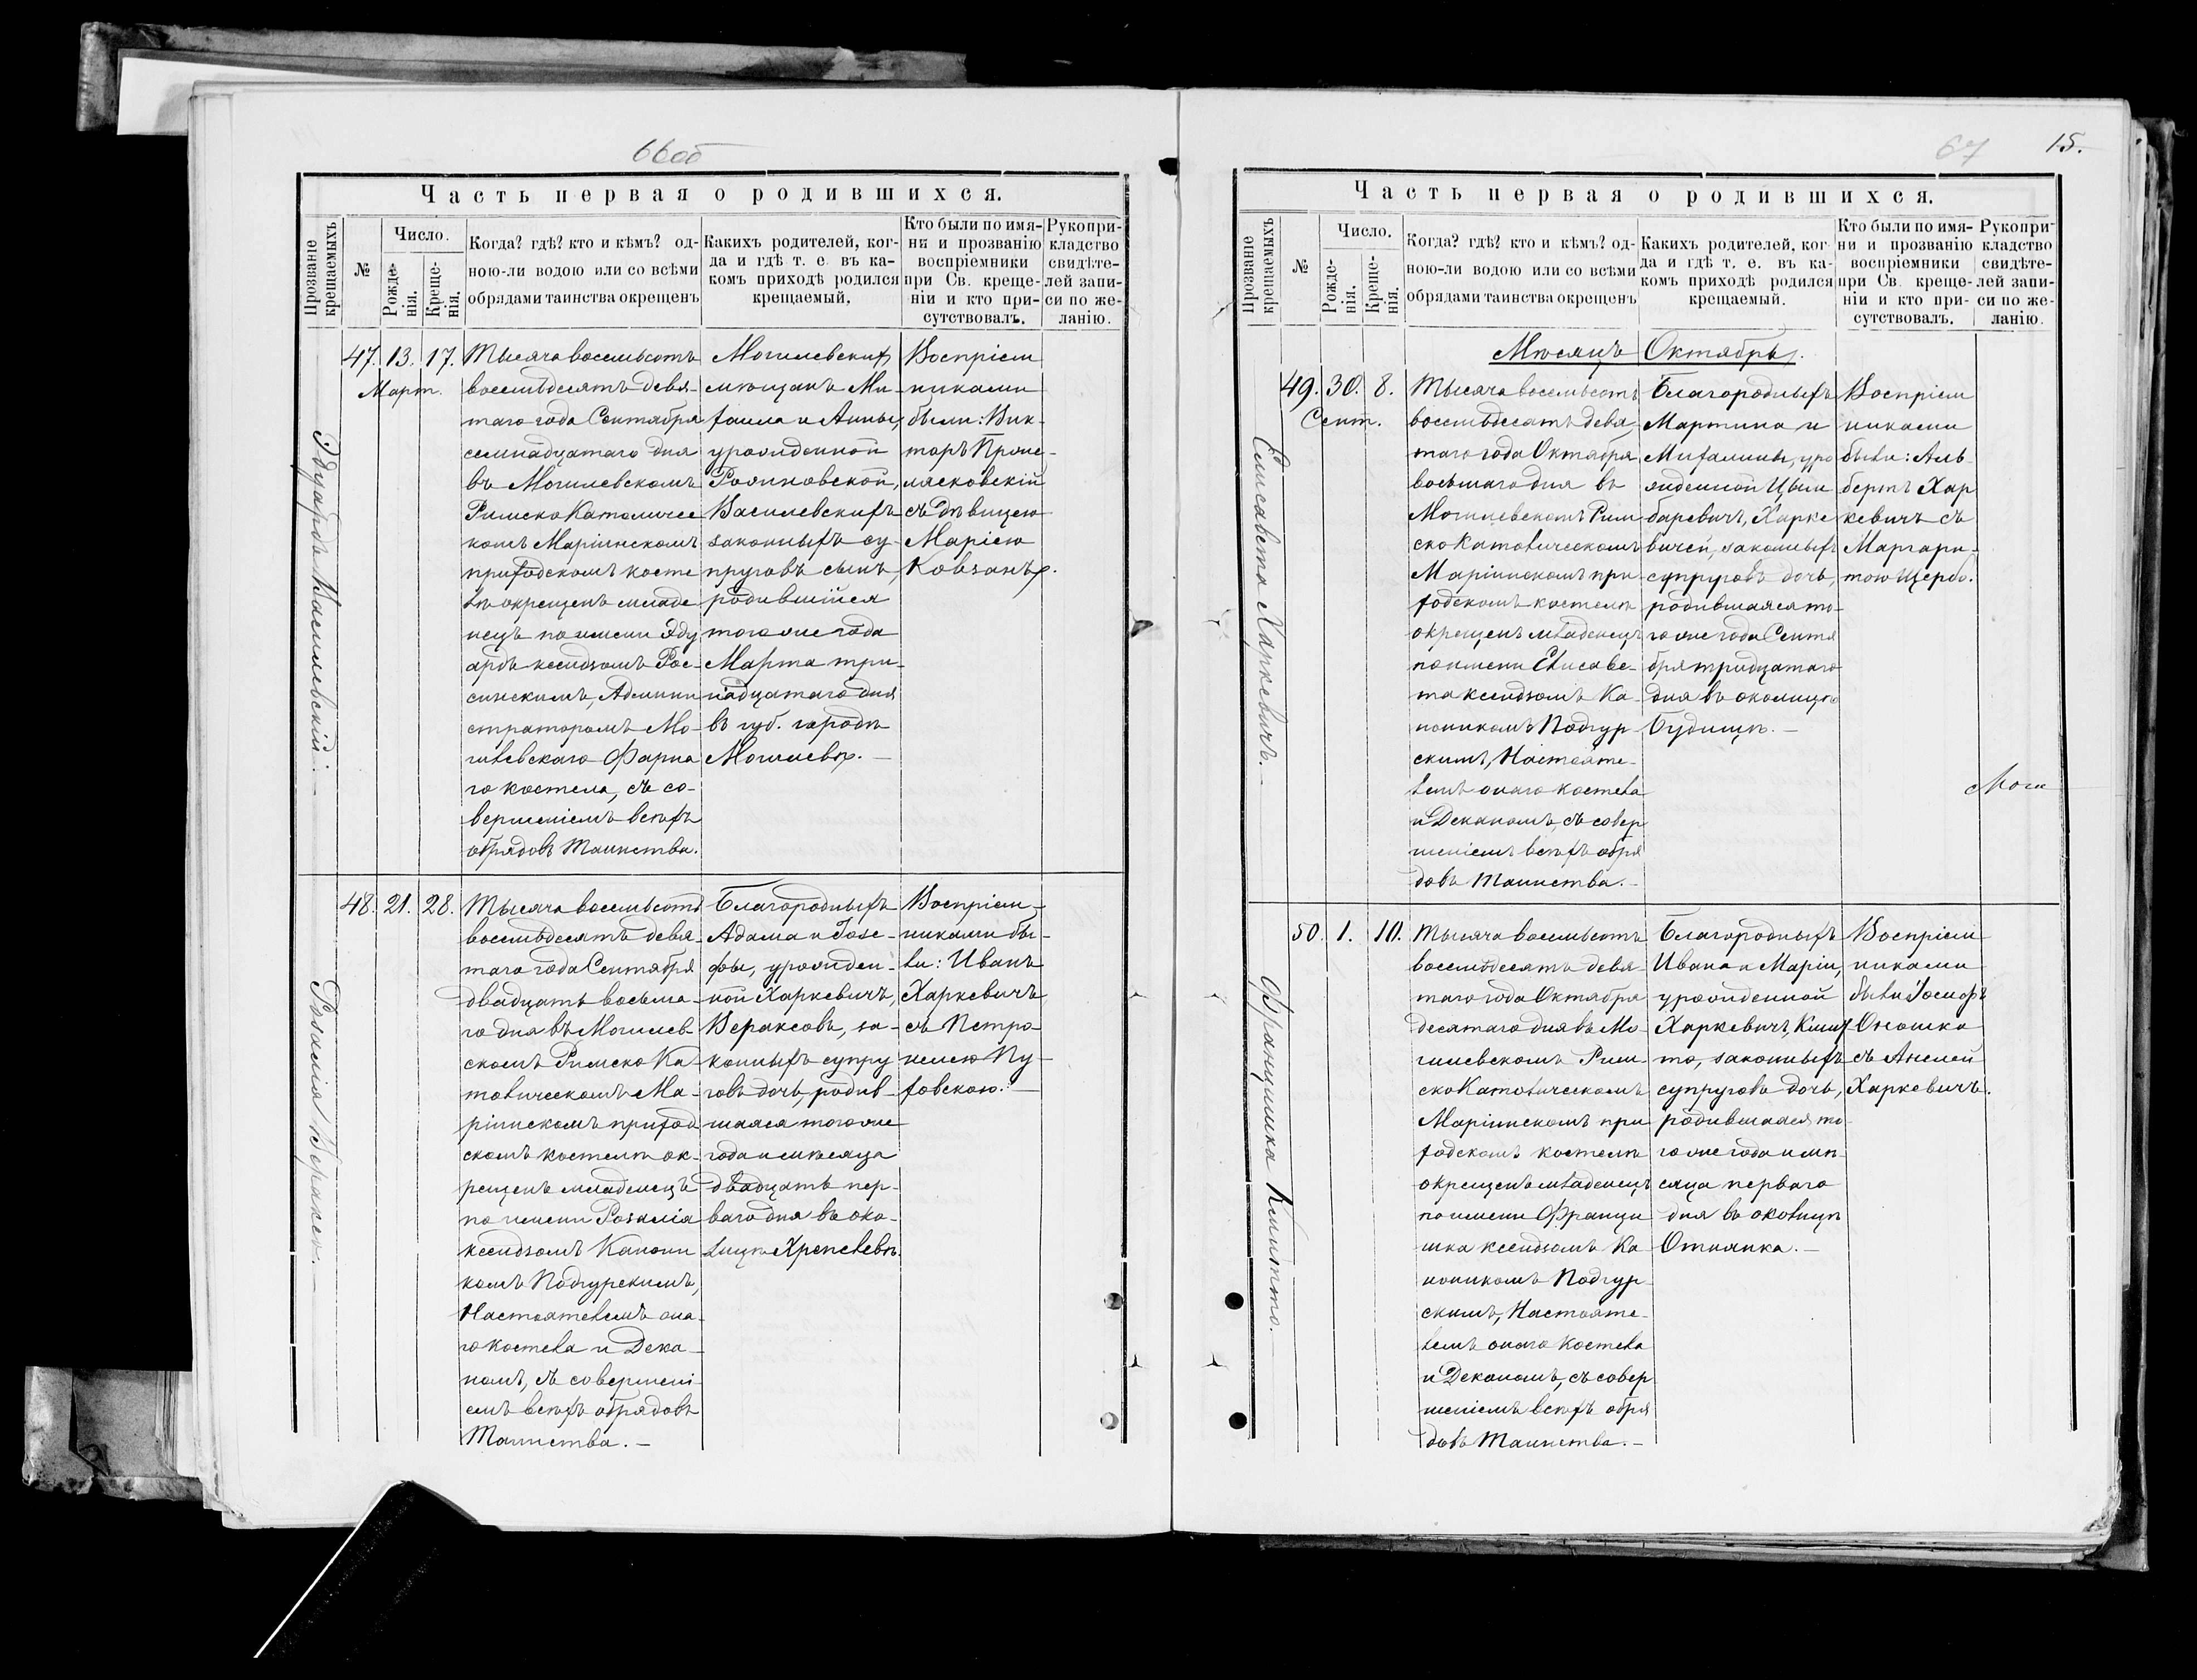 66об
Часть первая о родившихся.
Прозваніе крещаемыхъ
№
Число.
Рожде-
нія.
Креще-
нія.
Когда? гдѣ? кто и кѣмъ? од-
ною-ли водою или со всѣми
обрядами таинства окрещенъ
Какихъ родителей, ког-
да и гдѣ т. е. въ ка-
комъ приходѣ родился
крещаемый.
Кто были по имя-
ни и прозванію
воспріемники
при Св. креще-
ніи и кто при-
сутствовалъ.
Рукопри-
кладство
свидѣте-
лей запи-
си по же-
ланію.
Эдуардъ Василевскій.
47. 13. 17.
Март.
Тысяча восемьсотъ
восемьдесятъ девя-
таго года Сентября
семнадцатаго дня
въ Могилевскомъ
Римско Католичес
комъ Маріинскомъ
приходскомъ косте
лѣ окрещенъ младе
нецъ по имени Эду
ардъ ксендзомъ Рос-
синскимъ, Админи
страторомъ Мо-
гилевскаго Фарна
го костела, съ со-
вершеніемъ всѣхъ
обрядовъ Таинства.
Могилевскихъ
мѣщанъ Ми-
хаила и Анны,
урожденной
Рожновской,
Василевскихъ
законныхъ су-
пруговъ сынъ,
родившійся
того же года
Марта три-
надцатаго дня
въ губ. городѣ
Могилевѣ.
Воспріем
никами
были: Вик-
торъ
съ Дѣвицею
Маріею
Ковзанъ.
Розалія Вераксо.
48. 21. 28.
Тысяча восемьсотъ
восемьдесятъ девя-
таго года Сентября
двадцать восьма-
го дня въ Могилев-
скомъ Римско Ка-
толическомъ Ма-
ріинскомъ приход
скомъ костелѣ ок-
рещенъ младенецъ
по имени Розалія
ксендзомъ Канони
комъ Подгурскимъ,
Настоятелемъ она-
го костела и Дека-
номъ, съ совершені-
емъ всѣхъ обрядовъ
Таинства.
Благородныхъ
Адама и Іозе-
фы, урожден-
ной Харкевичъ,
Вераксовъ, за-
конныхъ супру
говъ дочь, родив-
шаяся того же
года и мѣсяца
двадцать пер-
ваго дня въ око-
лицѣ Хрепелевѣ.
Воспріем-
никами бы-
ли: Иванъ
Харкевичъ
съ Петро-
нелею Пу-
ховскою.
67 15.
Часть первая о родившихся.
Прозваніе крещаемыхъ
№
Число.
Рожде-
нія.
Креще-
нія.
Когда? гдѣ? кто и кѣмъ? од-
ною-ли водою или со всѣми
обрядами таинства окрещенъ
Какихъ родителей, ког-
да и гдѣ т. е. въ ка-
комъ приходѣ родился
крещаемый.
Кто были по имя-
ни и прозванію
воспріемники
при Св. креще-
ніи и кто при-
сутствовалъ.
Рукопри-
кладство
свидѣте-
лей запи-
си по же-
ланію.
Мѣсяцъ Октябрь.
Елисавета Харкевичъ.
49. 30. 8.
Сент.
Тысяча восемьсотъ
восемьдесятъ девя
таго года Октября
восьмаго дня въ
Могилевскомъ Рим
ско Католическомъ
Маріинскомъ при
ходскомъ костелѣ
окрещенъ младенецъ
по имени Елисаве-
та ксендзомъ Ка-
ноникомъ Подгур-
скимъ, Настояте-
лемъ онаго костела
и Деканомъ, съ совер
шеніемъ всѣхъ обря
довъ Таинства.
Благородныхъ
Мартина и
Михалины, уро
жденной Цым
баревичъ, Харке
вичей, законныхъ
супруговъ дочь,
родившаяся то-
го же года Сентя
бря тридцатаго
дня въ околицѣ
Будищѣ.
Воспріем
никами
были: Аль-
бертъ Хар
кевичъ съ
Маргари-
тою Щербо.
Моги
Францишка Климто.
50. 1. 10.
Тысяча восемьсотъ
восемьдесятъ девя-
таго года Октября
десятаго дня въ Мо-
гилевскомъ Рим-
ско Католическомъ
Маріинскомъ при
ходскомъ костелѣ
окрещенъ младенецъ
по имени Франци
шка ксендзомъ Ка
ноникомъ Подгур-
скимъ, Настояте-
лемъ онаго костела
и Деканомъ, съ совер
шеніемъ всѣхъ обря
довъ Таинства.
Благородныхъ
Ивана и Маріи,
урожденной
Харкевичъ, Клим
то, законныхъ
супруговъ дочь,
родившаяся то-
го же года и мѣ-
сяца перваго
дня въ околицѣ
Отнянка.
Воспріем
никами
были Іосифъ
Оношко
съ Анелей
Харкевичъ.